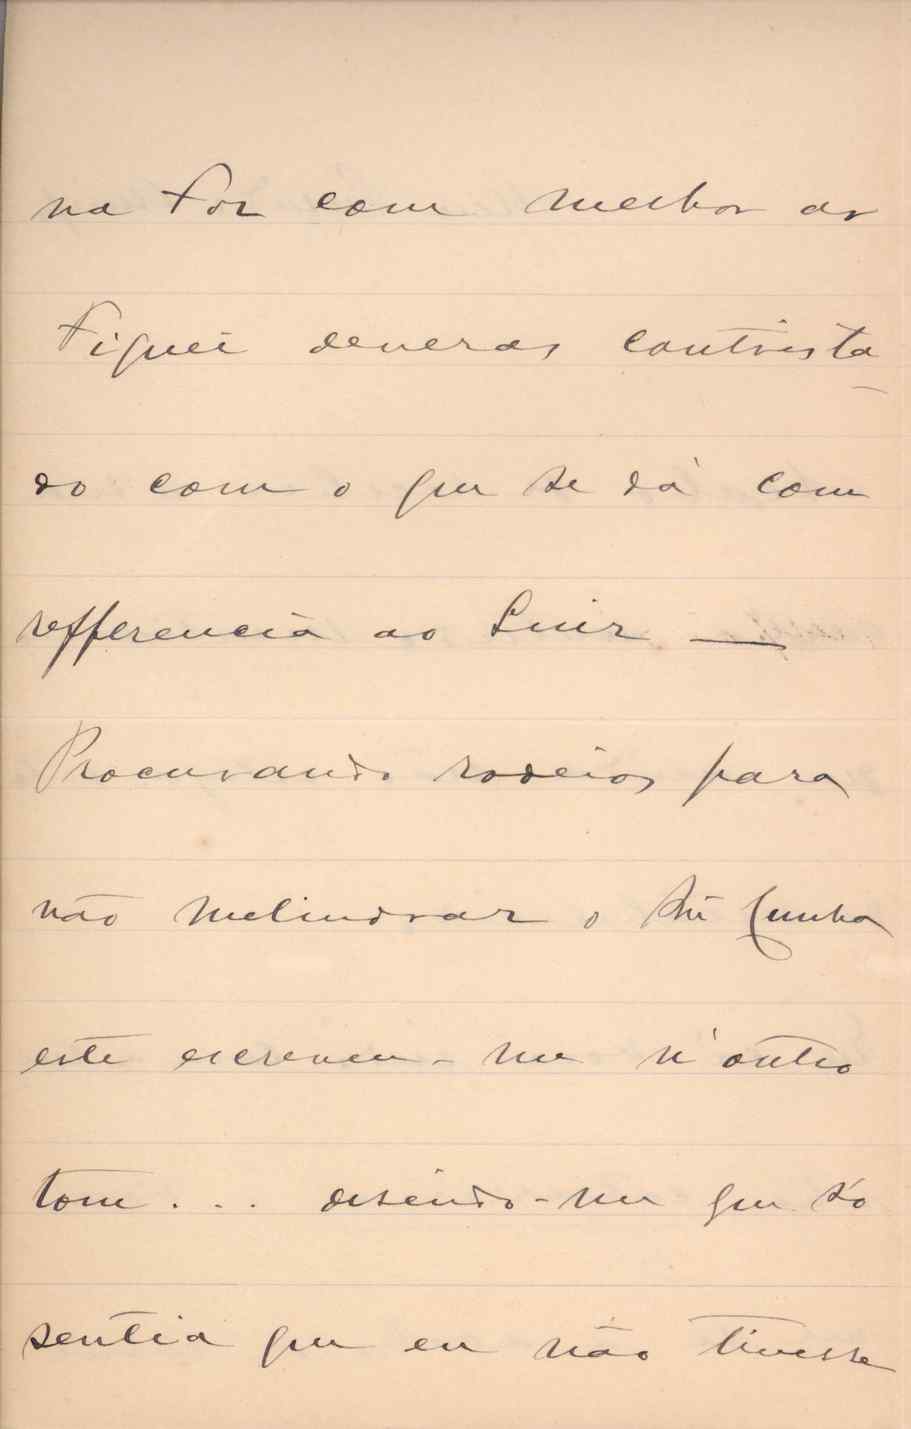 na Foz com melhor ar
Fiquei deveras contrista
do com o que se dá com
refferencia ao Luiz —
Procurando rodeios para
não melindrar o Snr Cunha
este escreveu-me n'outro
tom... disendo-me que só
sentia que eu não tivesse